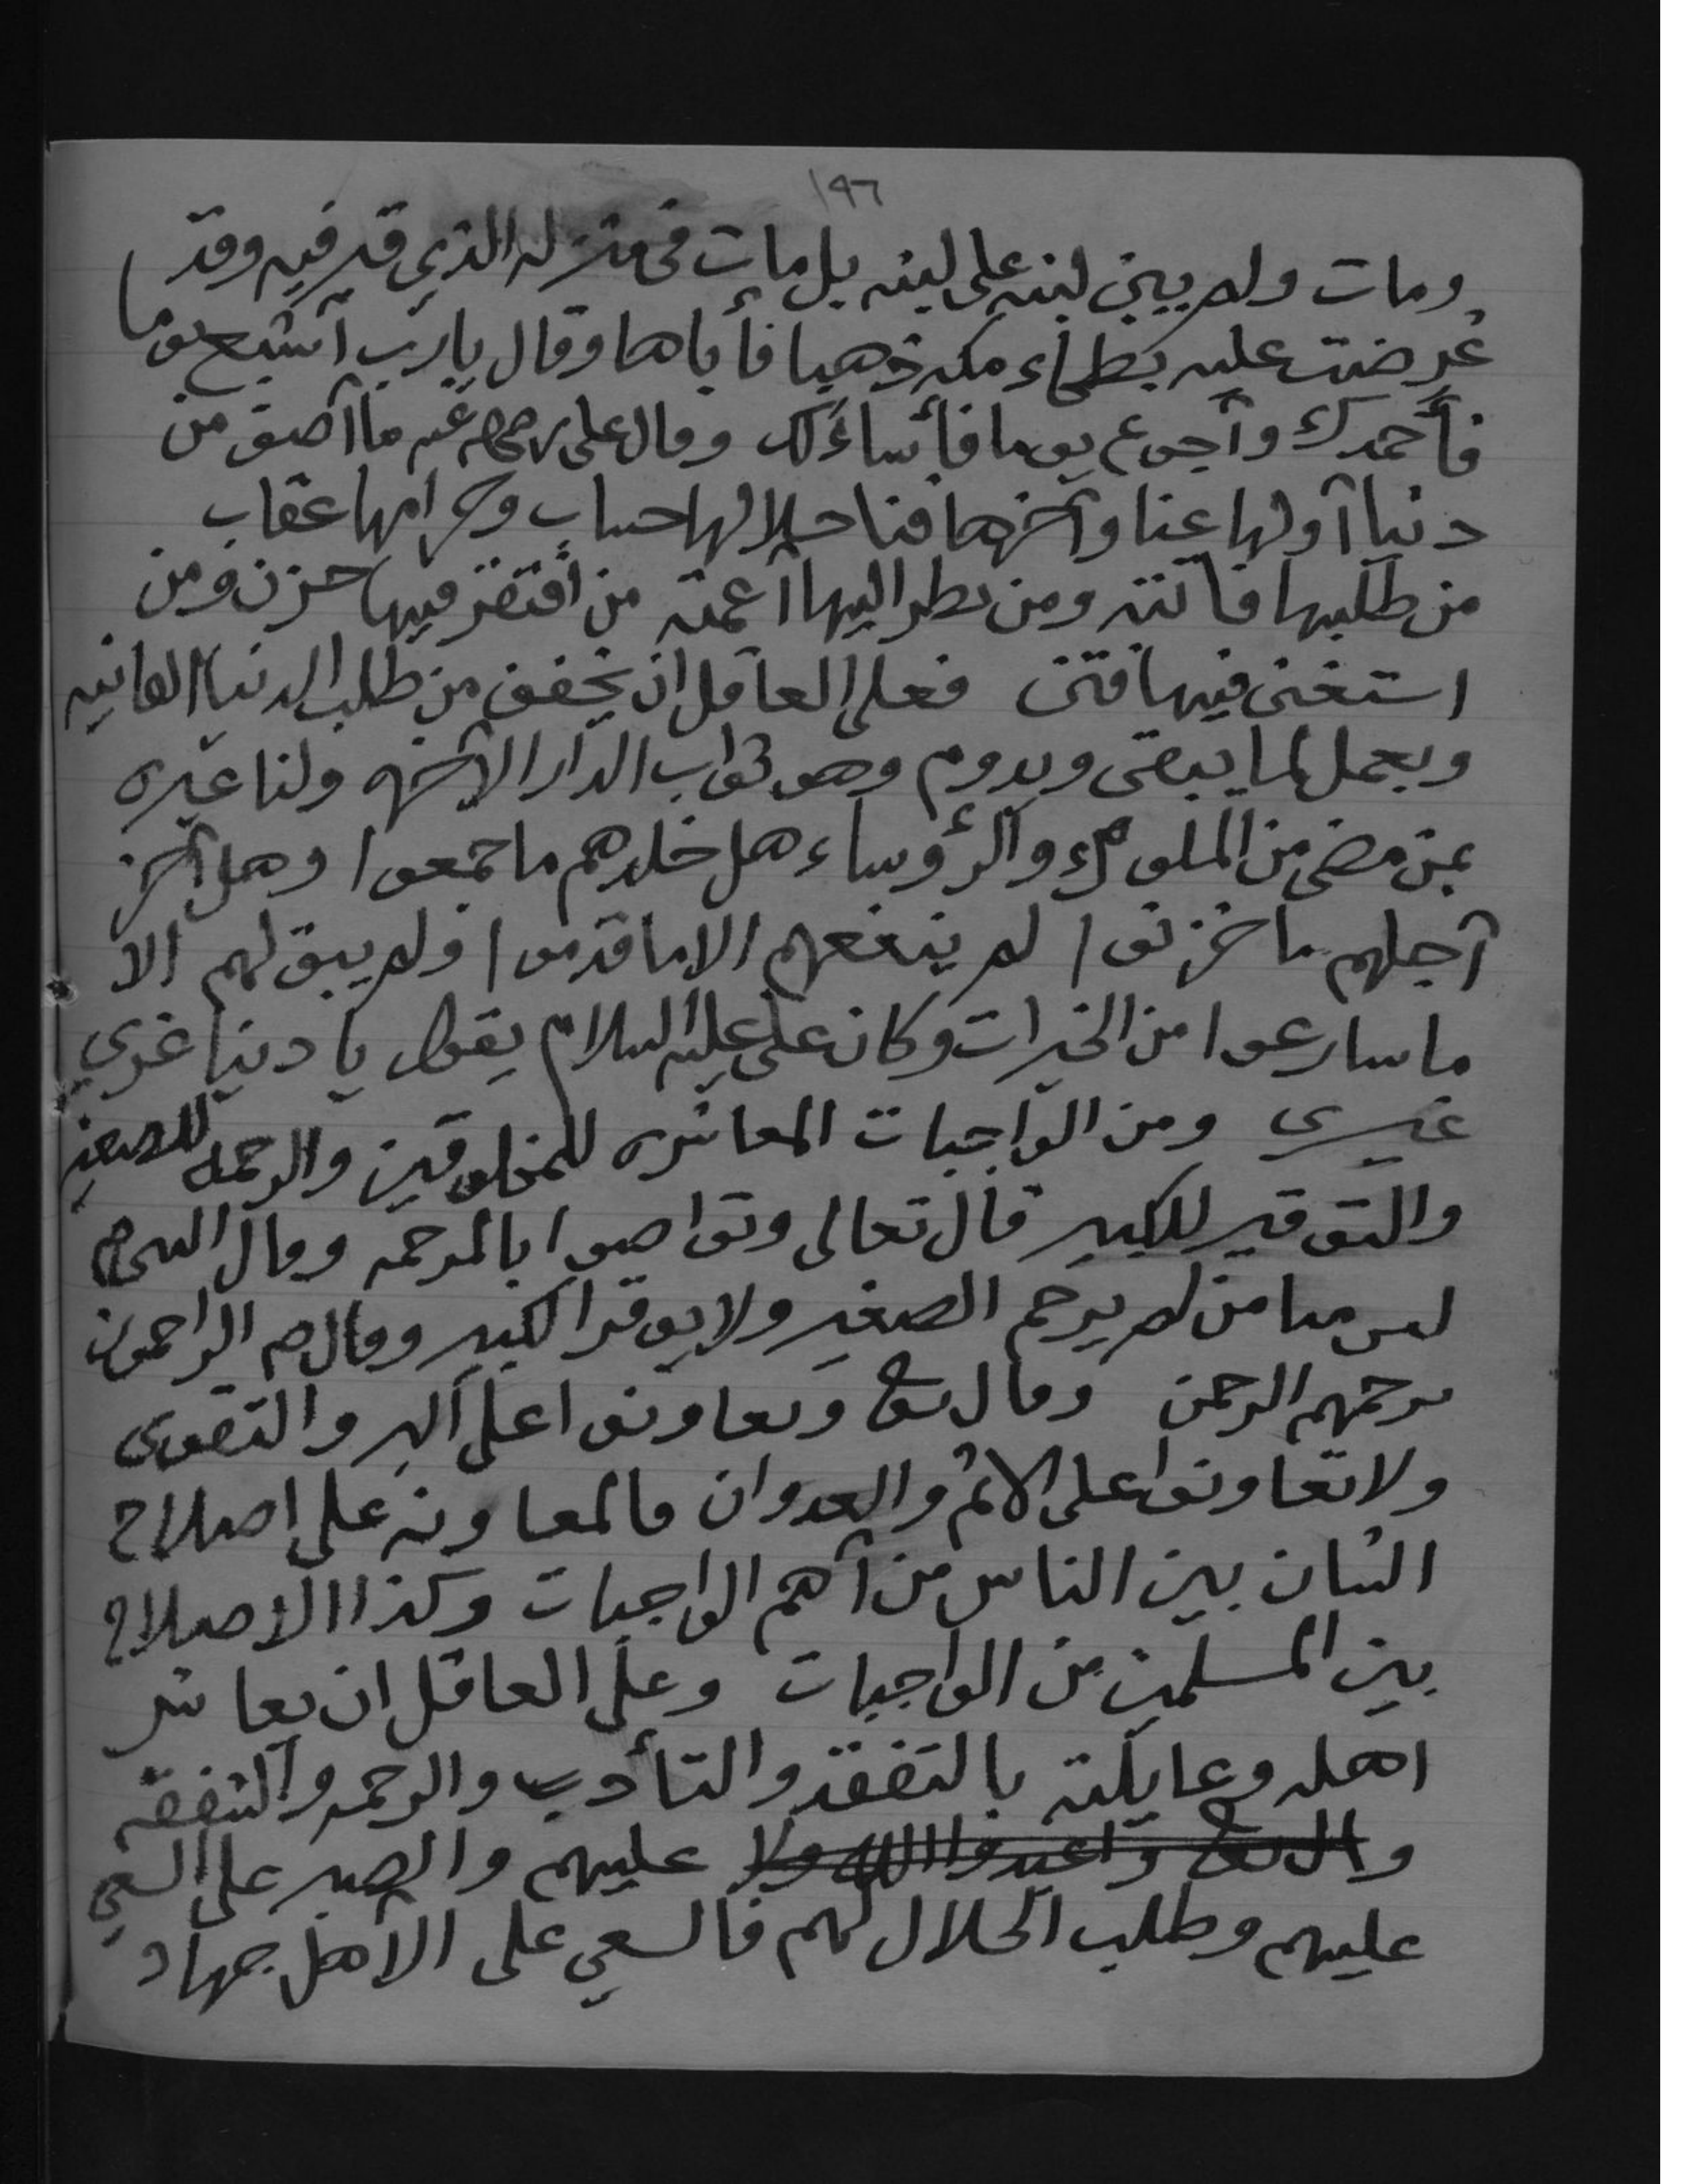 ١٩٦
ومات ولم يبني لبنه على لبنه بل مات في منزله الذي قبر فيه وقد
عُرضت عليه بطحاء مكه ذهبا فأباها وقال يارب أشبع يوما
فأحمدك وأجوع يوما فأساءلك وقال علي رضي عنه ما أصف من
دنيا أولها عنا وآخرها فنا حلالها حساب وحرامها عقاب
من طلبها فاتته ومن نظر اليها أعمته من أفتقر فيها حزن ومن
استغنى فيها فتن فعلى العاقل ان يخفف من طلب الدنيا الفانيه
ويعمل لما يبقى ويدوم وهو ثواب الدار الآخره ولنا عبره
بمن مضى من الملوك والرؤساء هل خلدهم ما جمعوا وهل أخر
أجلهم ما خزنوا لم ينفعهم الا ما قدموا ولم يبق لهم الا
ما سارعوا من الخيرات وكان علي عليه السلام يقول يا دنيا غري
غيري ومن الواجبات المعاشره للمخلوقين والرحمه للصغير
والتوقير للكبير قال تعالى وتواصوا بالمرحمه وقال النبي صم
ليس منا من لم يرحم الصغير ولا يوقر الكبير وقال صم الراحمون
يرحمهم الرحمن وقال تعا وتعاونوا على البر والتقوى
ولا تعاونوا على الاثم والعدوان فالمعاونه على اصلاح
الشان بين الناس من أهم الواجبات وكذا الاصلاح
بين المسلمين من الواجبات وعلى العاقل ان يعاشر
اهله وعايلته بالتفقد والتأدب والرحمه والشفقه
وال تعا واعبدوا الله ولا عليهم والصبر على السعي
عليهم وطلب الحلال لهم فالسعي على الاهل جهاد